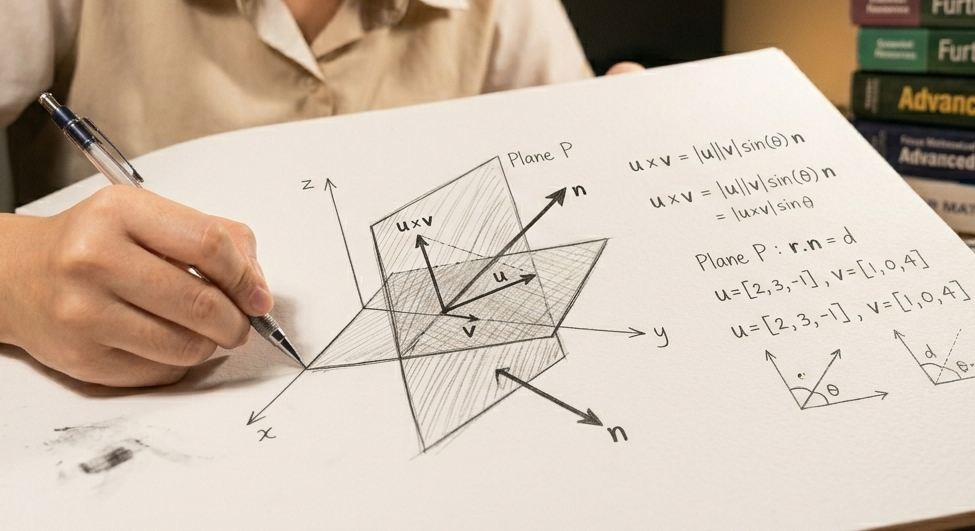 Plane P
z
n
u×v
u
v
y
x
n
u×v = |u||v|sin(θ)n
u×v = |u||v|sin(θ)n
= |u×v|sinθ
Plane P : r.n = d
u=[2,3,-1], v=[1,0,4]
u=[2,3,-1], v=[1,0,4]
θ
d
θ
Furt
Advanc
Advanced